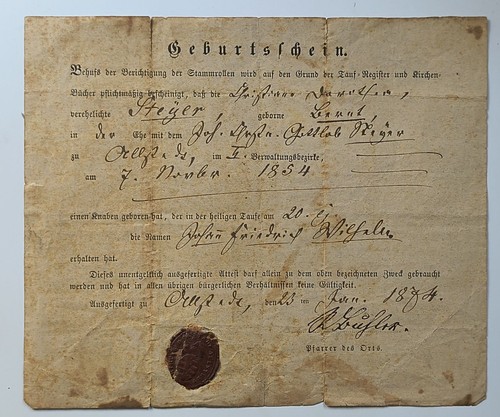 Geburtsſchein.
Behufs der Berichtigung der Stammrollen wird auf den Grund der Tauf-Regiſter und Kirchen-
Bücher pflichtmäßig beſcheinigt, daß die Chriſtiane Dorothea,
verehelichte Steÿer, geborne Bernt,
in der Ehe mit dem Joh. Gottlob Steÿer
zu Allſtedt, im II. Verwaltungsbezirke,
am 7. Novbr. 1854
einen Knaben geboren hat, der in der heiligen Taufe am 20. ej.
die Namen Johann Friedrich Wilhelm
erhalten hat.
Dieſes unentgeltlich ausgefertigte Atteſt darf allein zu dem oben bezeichneten Zweck gebraucht
werden und hat in allen übrigen bürgerlichen Verhältniſſen keine Gültigkeit.
Ausgefertigt zu Allſtedt, den 23 im Jan. 1874.
Pfarrer des Orts.